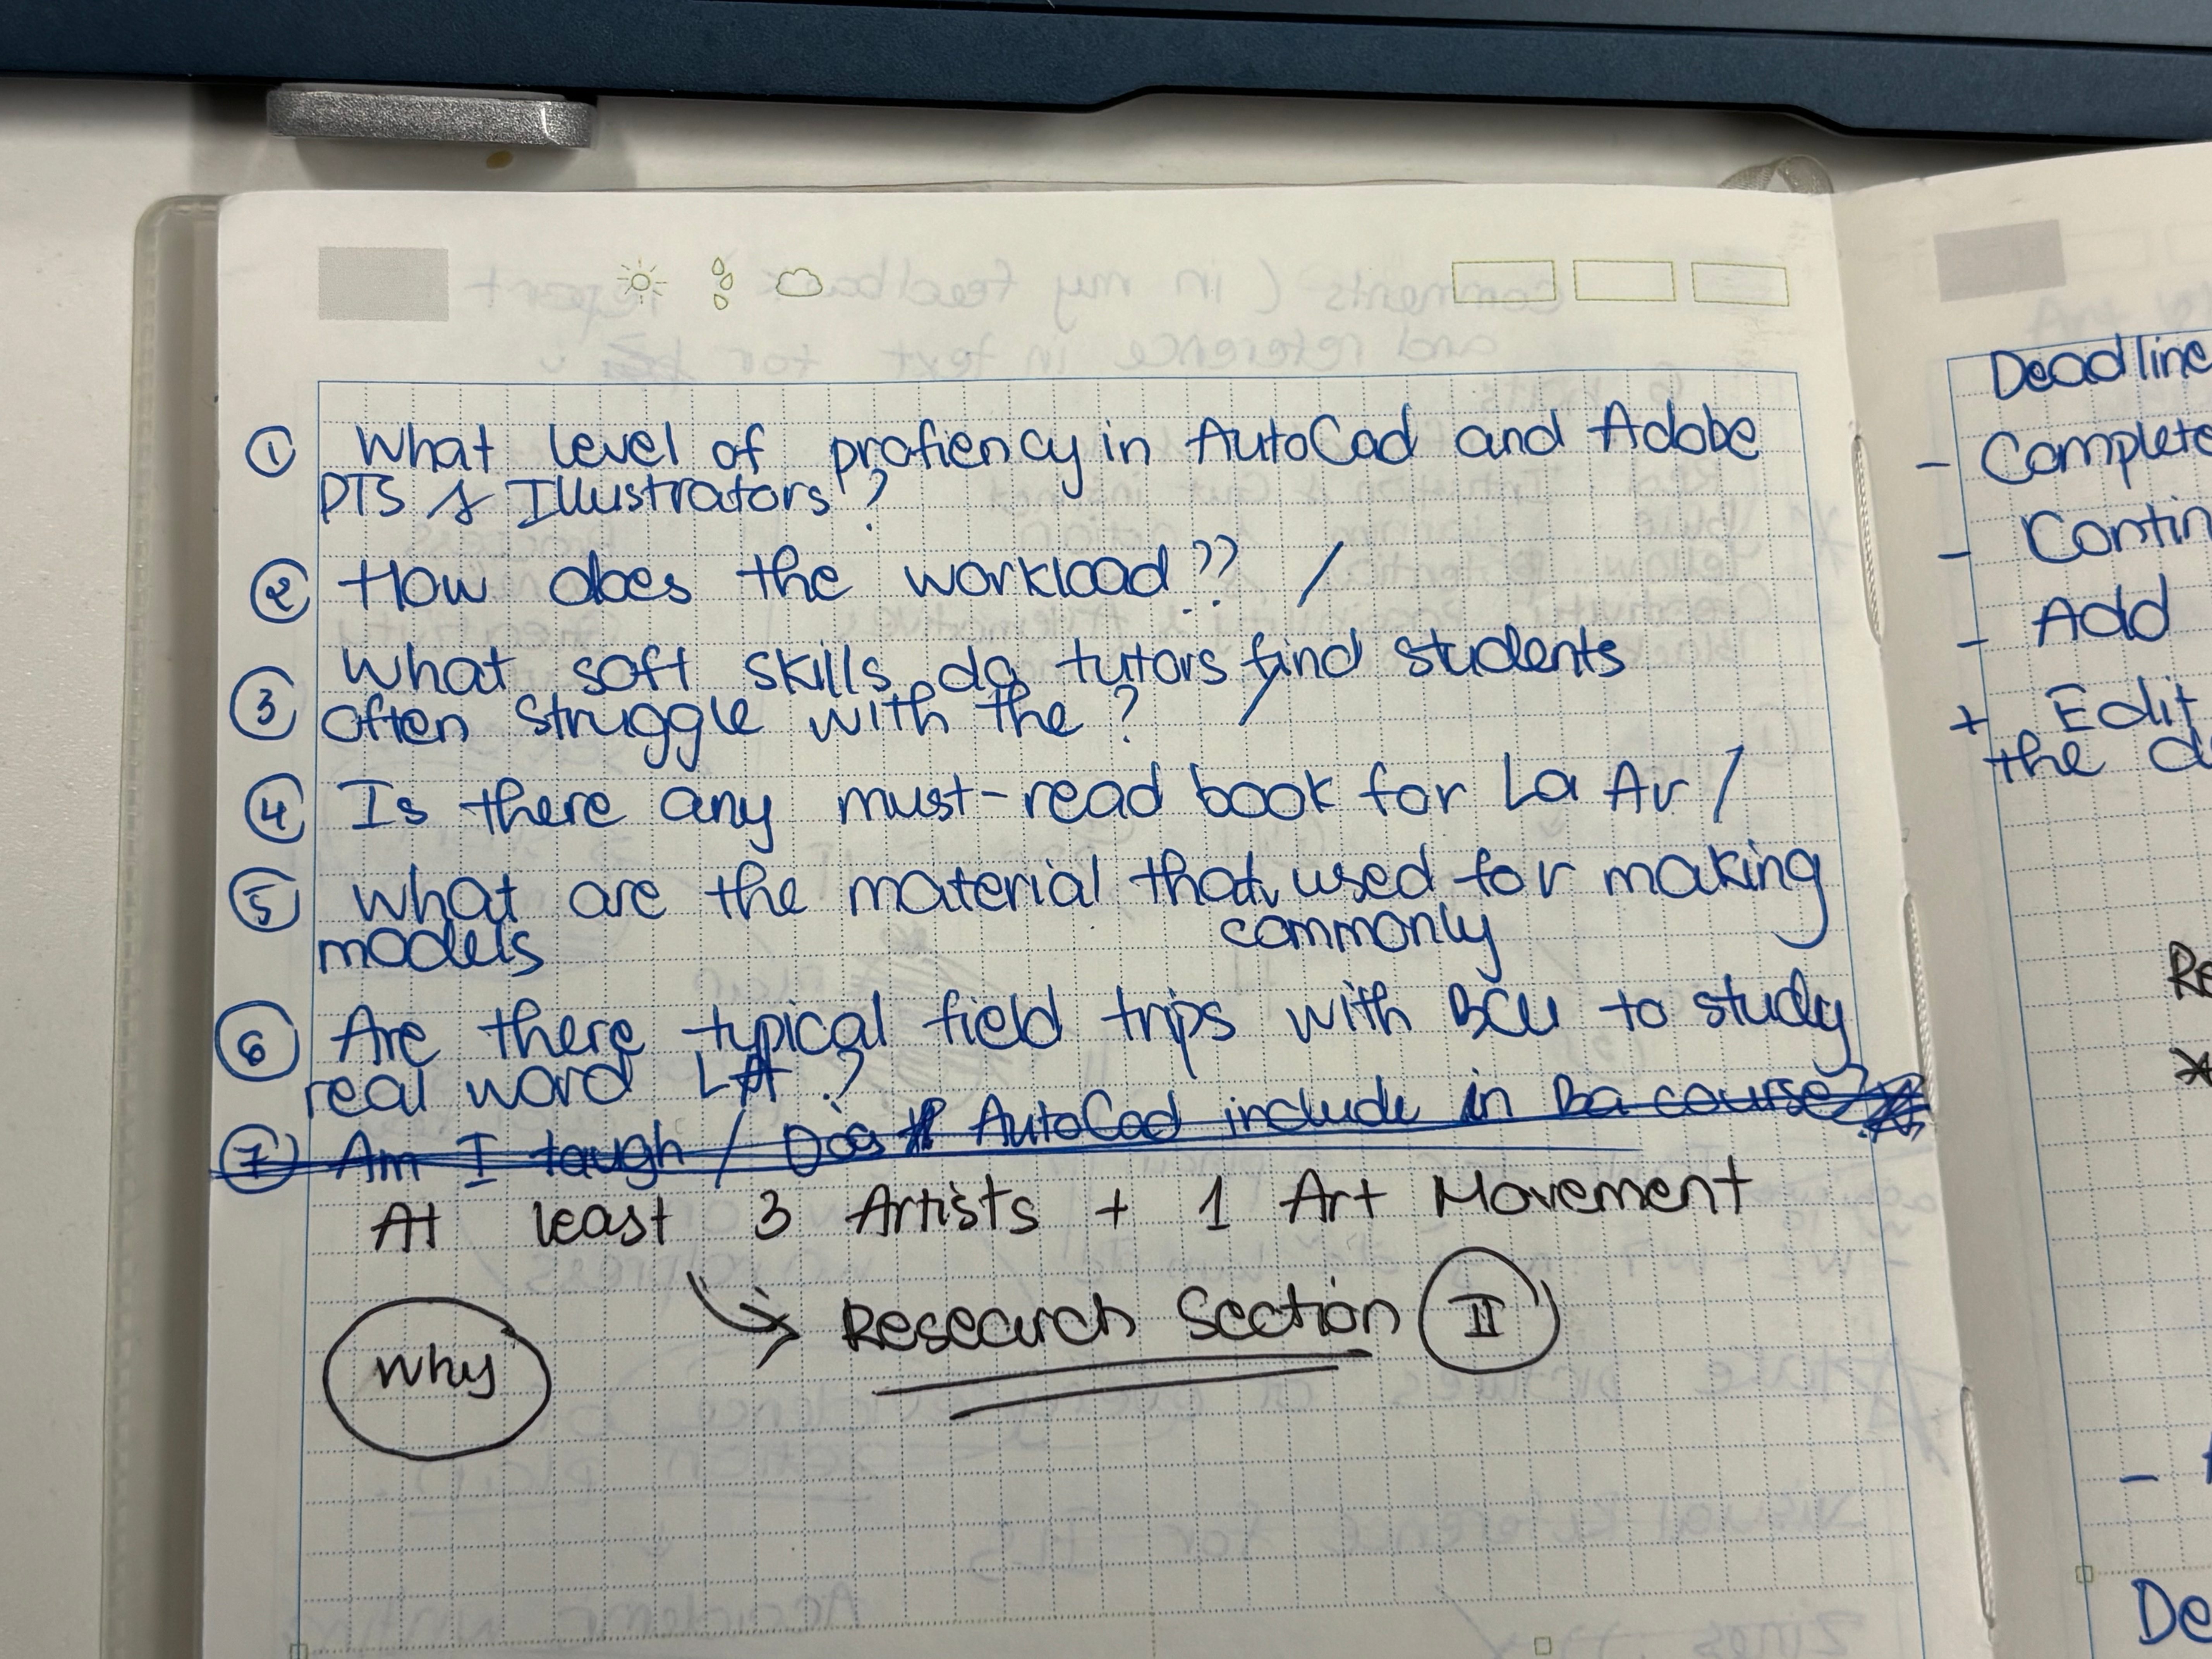 ① What level of profiency in AutoCad and Adobe
PTS & Illustrators ?
② How does the workload ?? /
③ What soft skills do tutors find students
often struggle with the ? /
④ Is there any must-read book for La Ar /
⑤ What are the material that used for making
models commonly
⑥ Are there typical field trips with BCU to study
real word LA ?
⑦ Am I taugh / Does AutoCad include in Ba course?
At least 3 Artists + 1 Art Movement
Research Section II
Why
Deadline
- Complete
- Contin
- Add
+ Edit
the d
Re
De